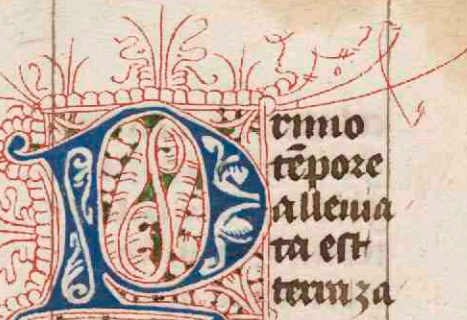 Primo
tēpore
alleuia
ta est
terra za